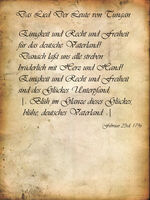 Das Lied Der Leute von Tangain
Einigkeit und Recht und Freiheit
für das deutsche Vaterland!
Danach laßt uns alle streben
brüderlich mit Herz und Hand!
Einigkeit und Recht und Freiheit
sind des Glückes Unterpfand;
|: Blüh im Glanze dieses Glückes,
blühe, deutsches Vaterland :|
Februar 23rd, 1796